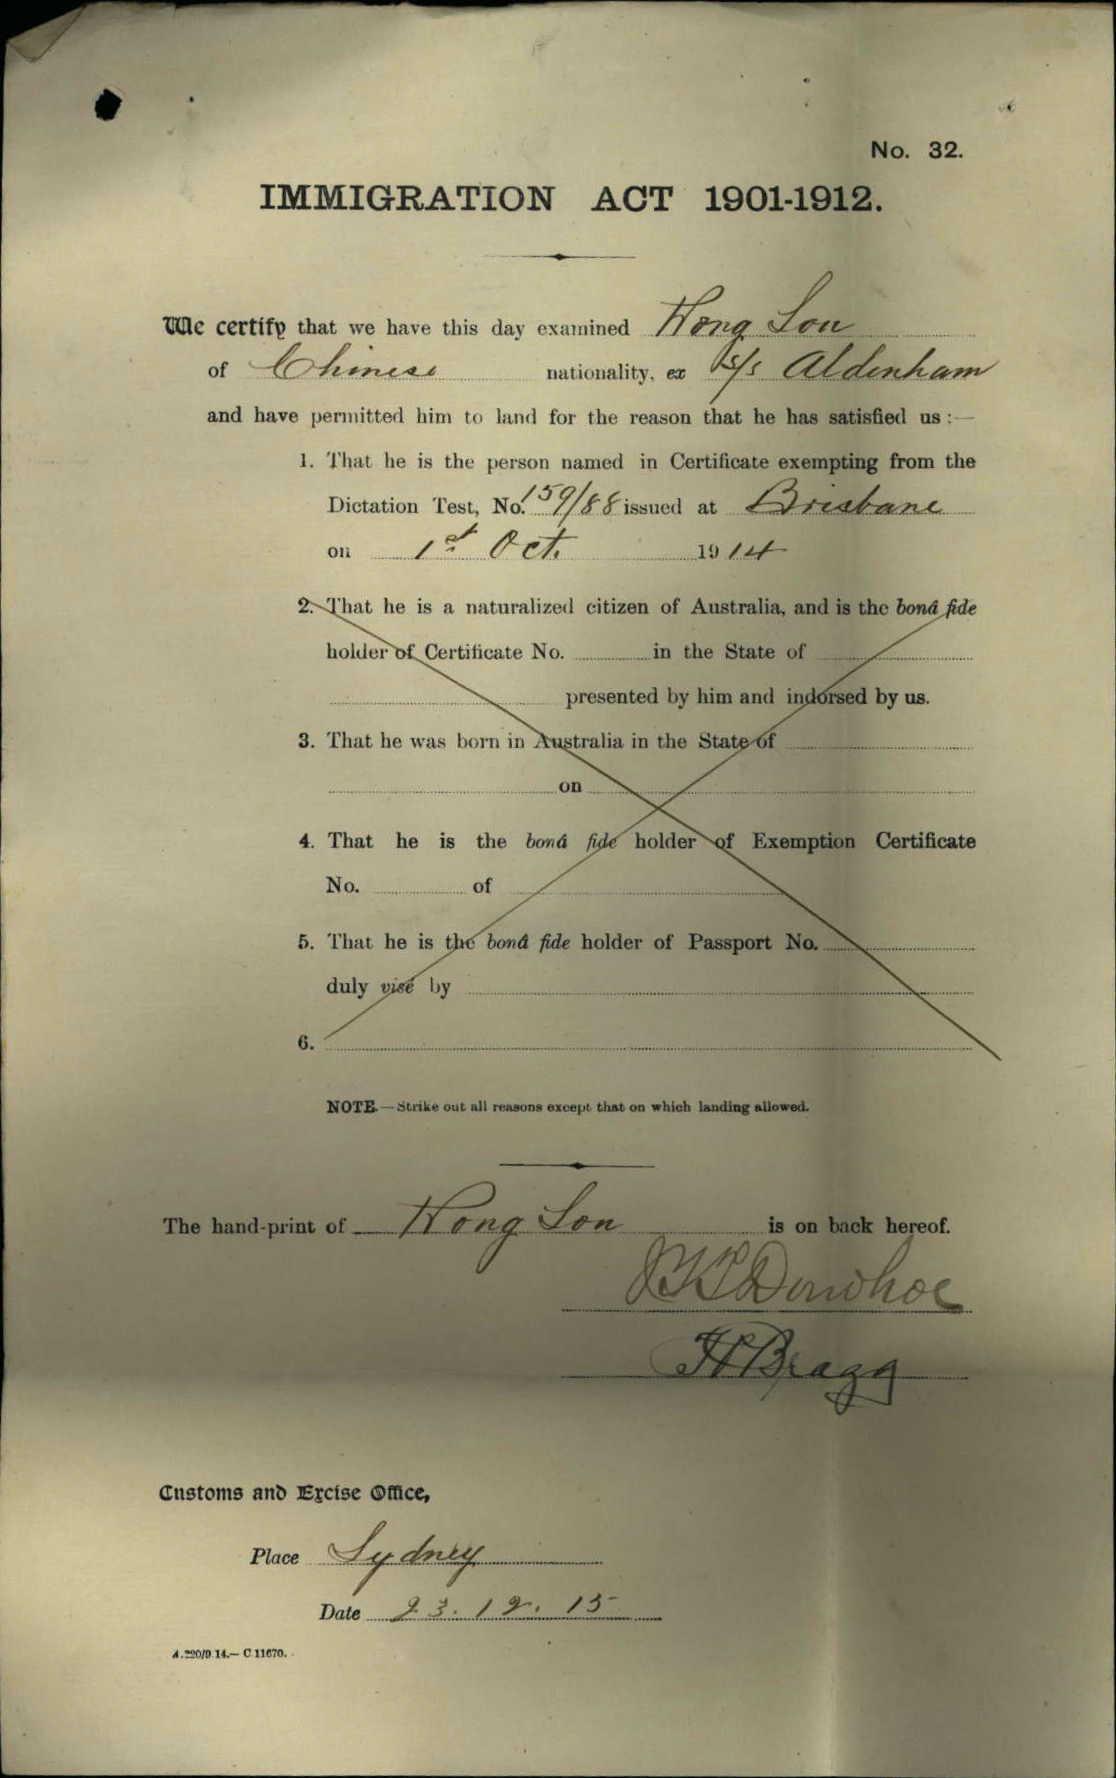 No. 32.
IMMIGRATION ACT 1901-1912.
We certify that we have this day examined Hong Son
of Chinese nationality, ex s/s Aldenham
and have permitted him to land for the reason that he has satisfied us :—
1. That he is the person named in Certificate exempting from the
Dictation Test, No. 159/88 issued at Brisbane
on 1st Oct. 1914
2. That he is a naturalized citizen of Australia, and is the bonâ fide
holder of Certificate No. in the State of
presented by him and indorsed by us.
3. That he was born in Australia in the State of
on
4. That he is the bonâ fide holder of Exemption Certificate
No. of
5. That he is the bonâ fide holder of Passport No.
duly visé by
6.
NOTE.—Strike out all reasons except that on which landing allowed.
The hand-print of Hong Son is on back hereof.
Donohoe
Bragg
Customs and Excise Office,
Place Sydney
Date 23.12.15
A.220/9.14.—C.11670.